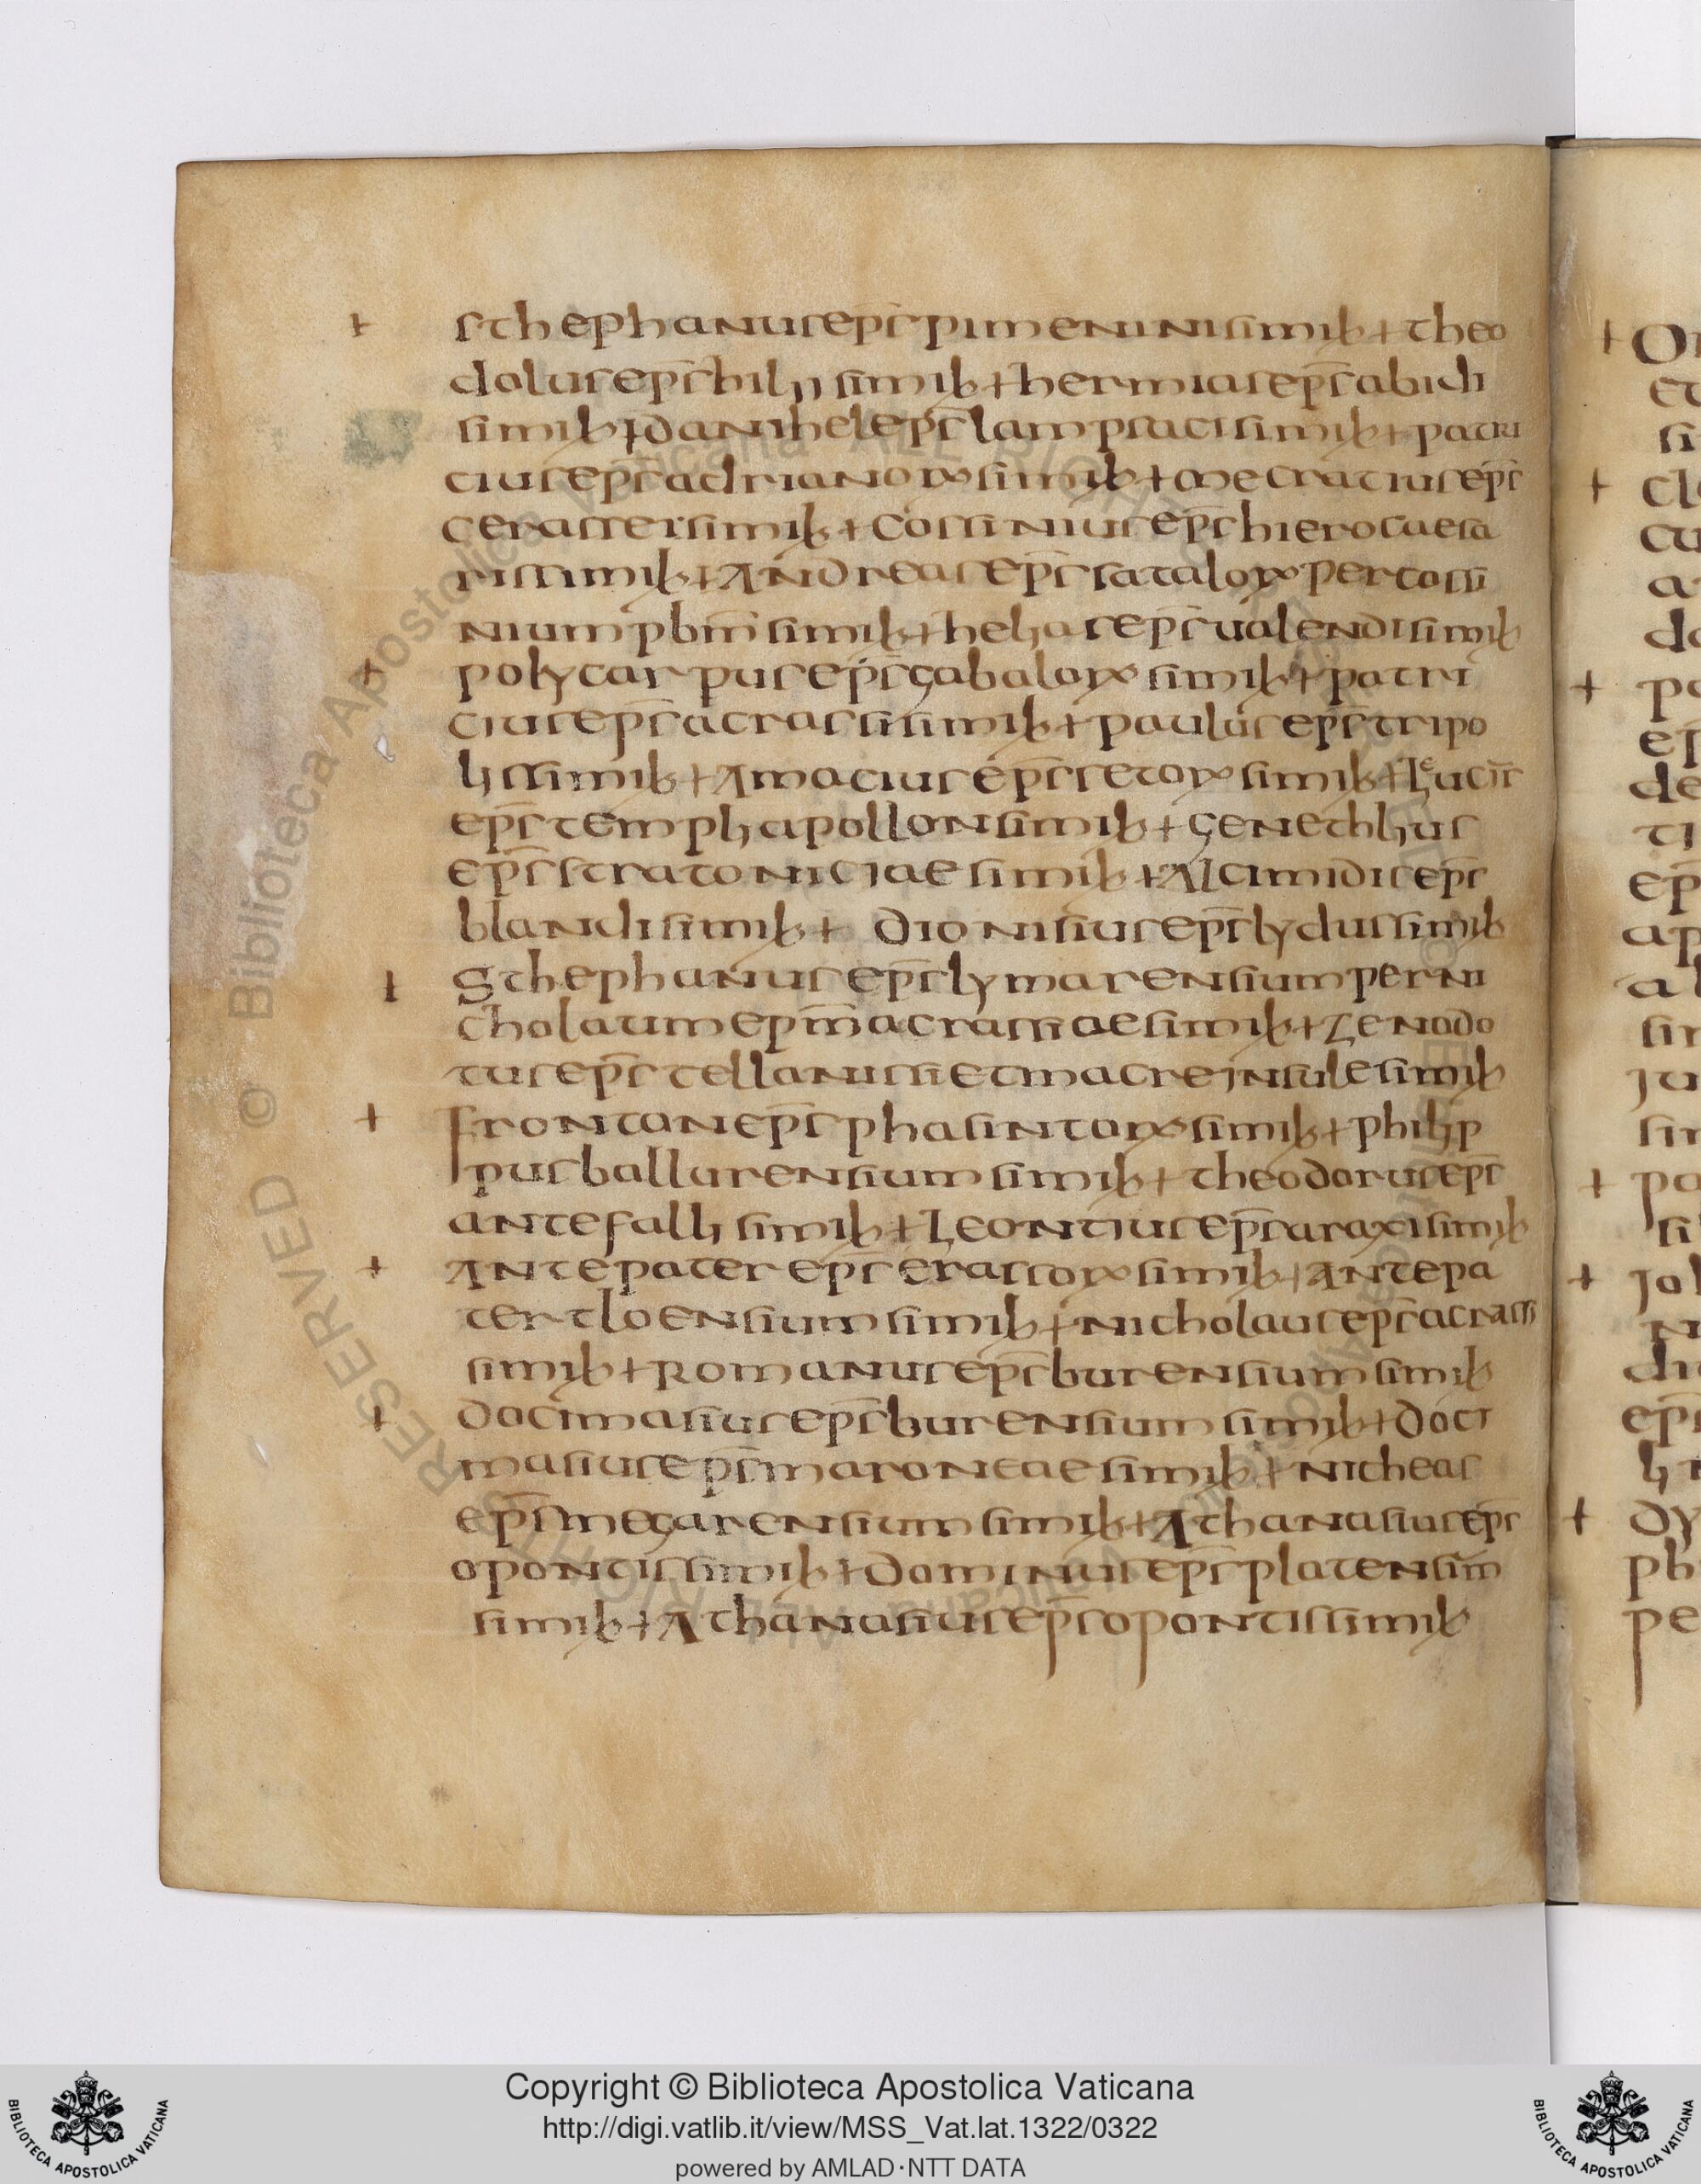 + sthephanus ep̅s pimeninis simiƚ + theo
dolus ep̅s hilii simiƚ + hermias ep̅s abidi
simiƚ + danihel ep̅s lampsaci simiƚ + patri
cius ep̅s adrianoꝝ simiƚ + mecratius ep̅s
cerasseis simiƚ + cossinius ep̅s hierocaesa
ris simiƚ + Andreas ep̅s sataloꝝ per cossi
nium pbm̅ simiƚ + helias ep̅s ualendi simiƚ
+ polycarpus ep̅s gabaloꝝ simiƚ + patri
cius ep̅s acrassi simiƚ + paulus ep̅s tripo
lis simiƚ + Amacius ep̅s setoꝝ simiƚ + Leuci̅s
ep̅s templi apollon simiƚ + genethlius
ep̅s stratoniciae simiƚ + Alcimidis ep̅s
blandi simiƚ + dionisius ep̅s lydus simiƚ
+ Sthephanus ep̅s lymarensium per ni
cholaum epm̅ acrassiae simiƚ + zenodo
tus ep̅s tellanissi et macre insule simiƚ
+ fronton ep̅s phasintoꝝ simiƚ + philip
pus ballurensium simiƚ + theodorus ep̅s
antefalli simiƚ + Leontius ep̅s araxi simiƚ
+ Antepater ep̅s erassoꝝ simiƚ + Antepa
ter tloensium simiƚ + nicholaus ep̅s acrassi
simiƚ + Romanus ep̅s burensium simiƚ
+ docimasius ep̅s burensium simiƚ + doci
masius ep̅s maroneae simiƚ + nicheas
ep̅s megarensium simiƚ + Athanasius ep̅s
opontis simiƚ + dominus ep̅s platensim̅
simiƚ + Athanasius ep̅s opontis simiƚ
Copyright © Biblioteca Apostolica Vaticana
http://digi.vatlib.it/view/MSS_Vat.lat.1322/0322
powered by AMLAD·NTT DATA
BIBLIOTECA APOSTOLICA VATICANA
BIBLIOTECA APOSTOLICA VATICANA